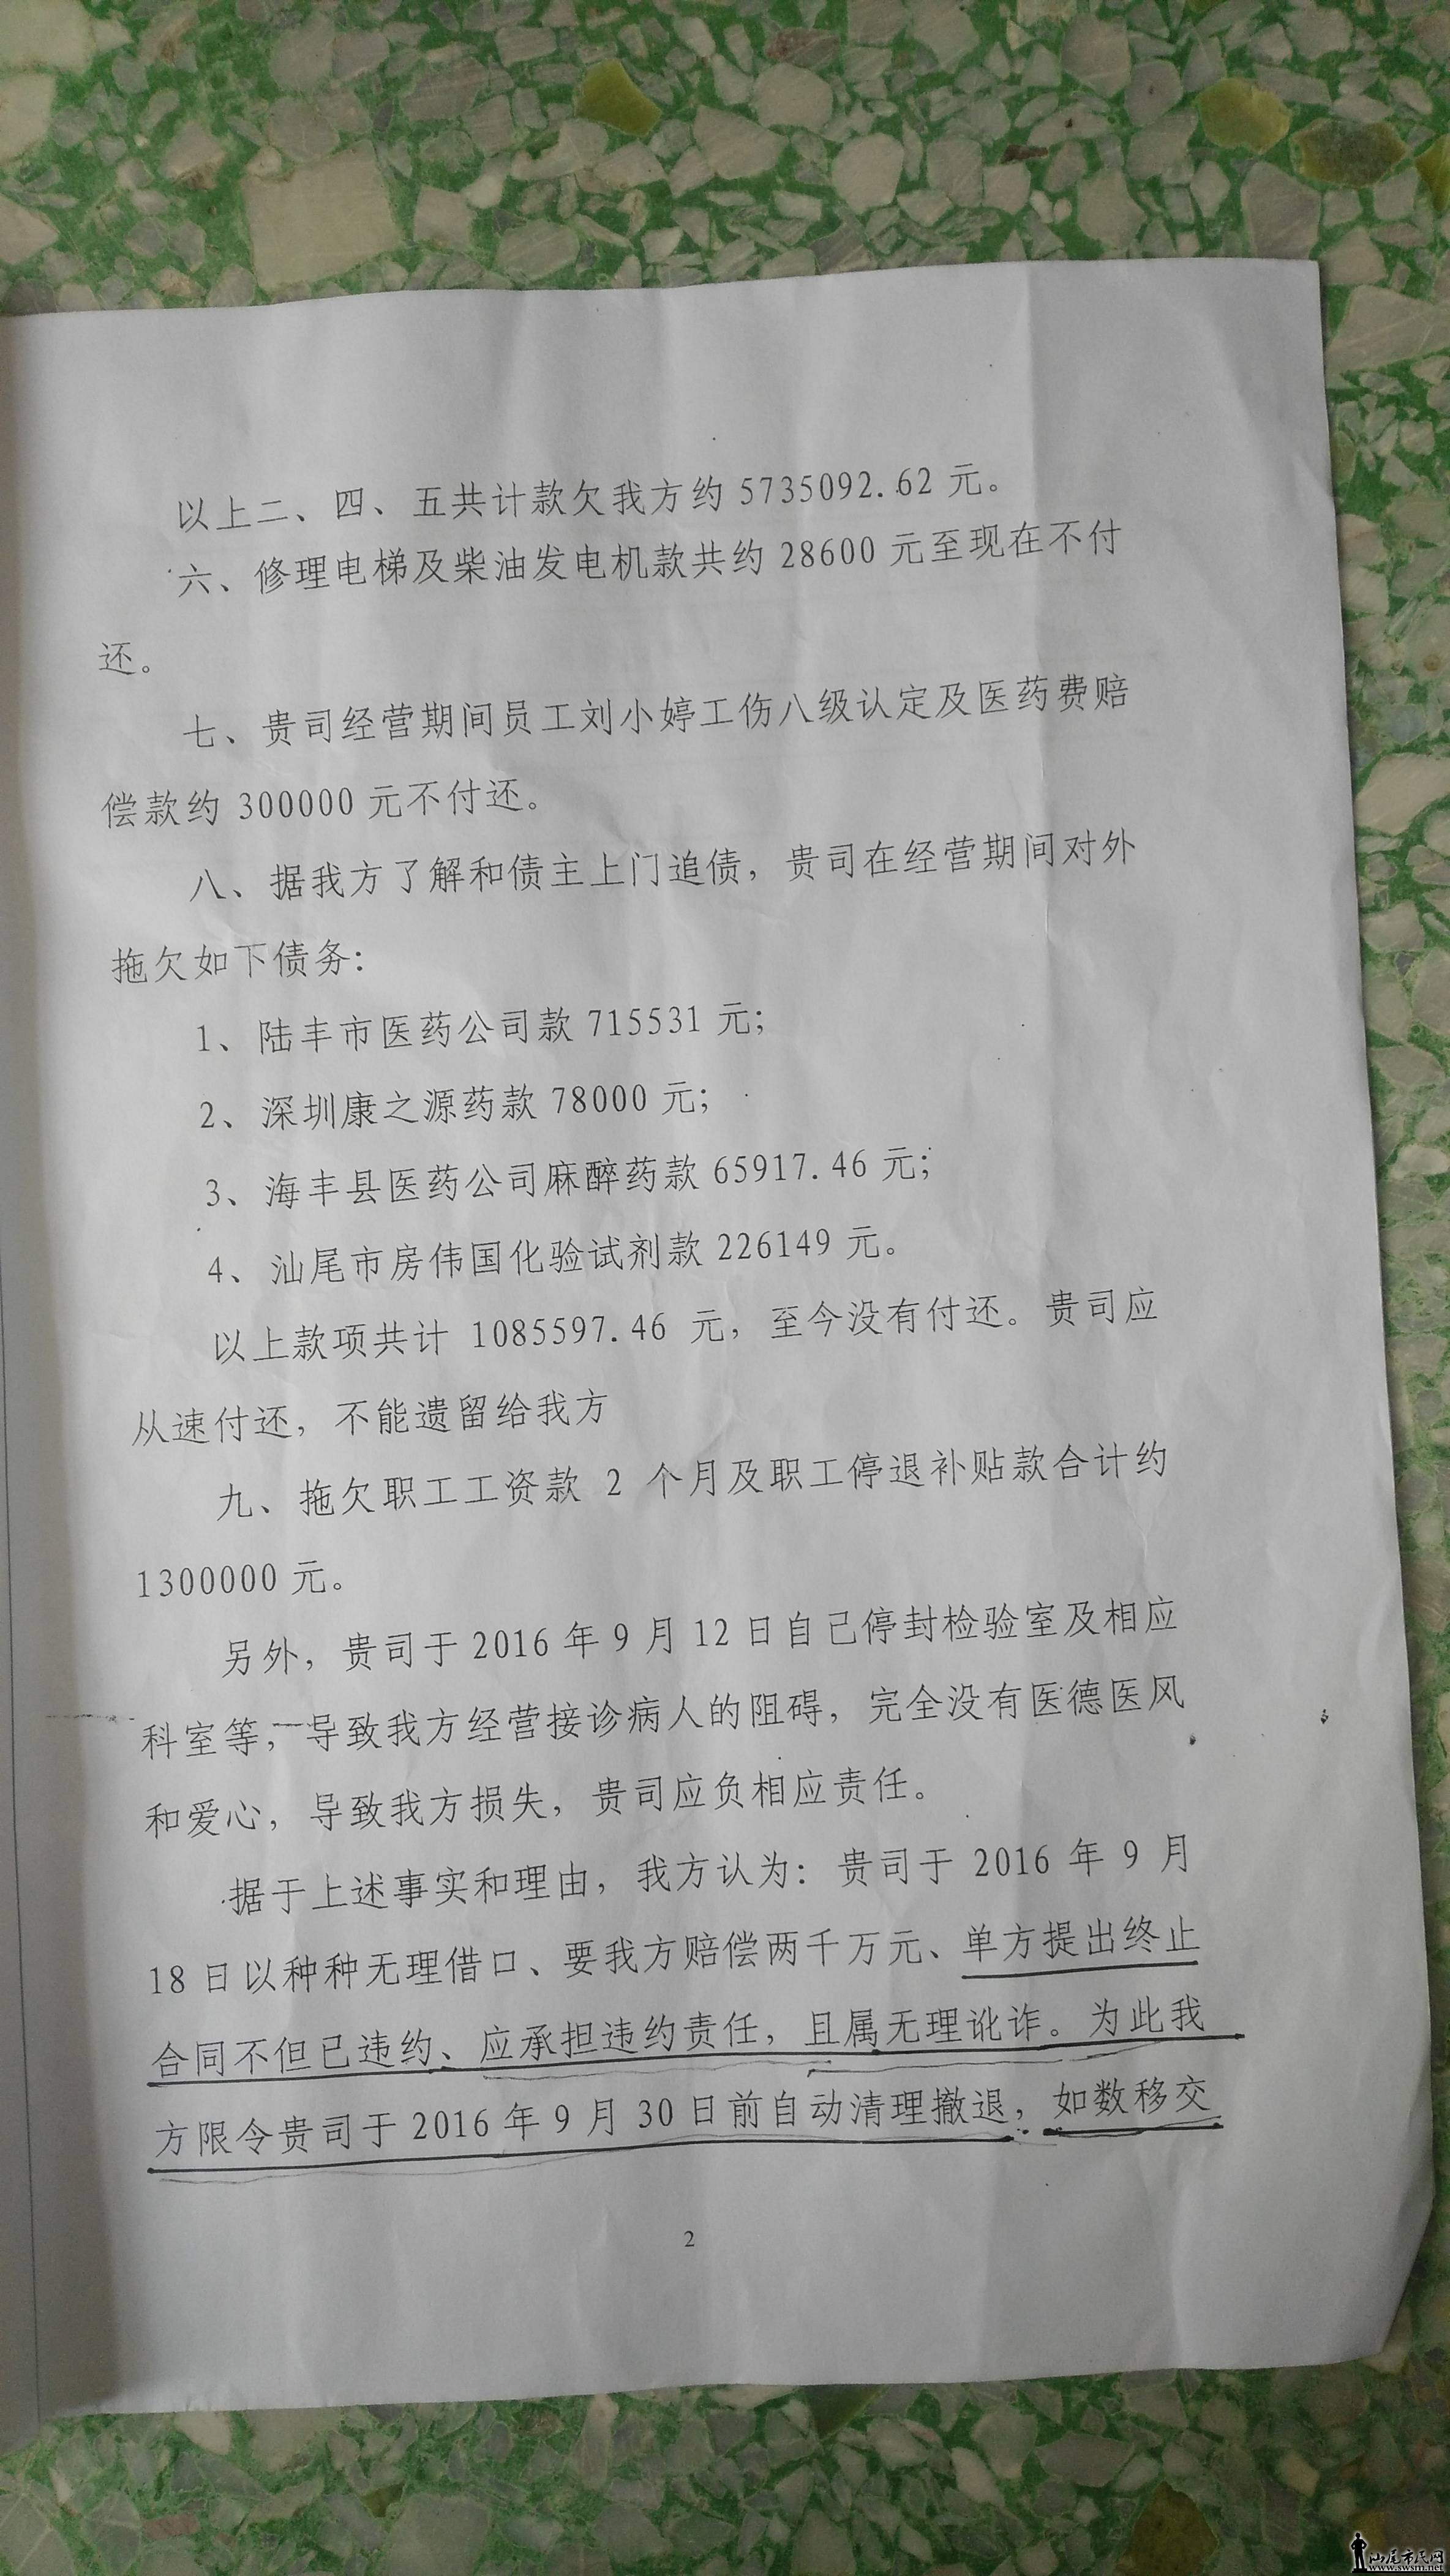 以上二、四、五共计款欠我方约 5735092.62 元。
六、修理电梯及柴油发电机款共约 28600 元至现在不付
还。
七、贵司经营期间员工刘小婷工伤八级认定及医药费赔
偿款约 300000 元不付还。
八、据我方了解和债主上门追债，贵司在经营期间对外
拖欠如下债务：
1、陆丰市医药公司款 715531 元；
2、深圳康之源药款 78000 元；
3、海丰县医药公司麻醉药款 65917.46 元；
4、汕尾市房伟国化验试剂款 226149 元。
以上款项共计 1085597.46 元，至今没有付还。贵司应
从速付还，不能遗留给我方
九、拖欠职工工资款 2 个月及职工停退补贴款合计约
1300000 元。
另外，贵司于 2016 年 9 月 12 日自己停封检验室及相应
科室等，导致我方经营接诊病人的阻碍，完全没有医德医风
和爱心，导致我方损失，贵司应负相应责任。
据于上述事实和理由，我方认为：贵司于 2016 年 9 月
18 日以种种无理借口、要我方赔偿两千万元、单方提出终止
合同不但已违约、应承担违约责任，且属无理讹诈。为此我
方限令贵司于 2016 年 9 月 30 日前自动清理撤退，如数移交
2
汕尾市民网
www.swsm.net